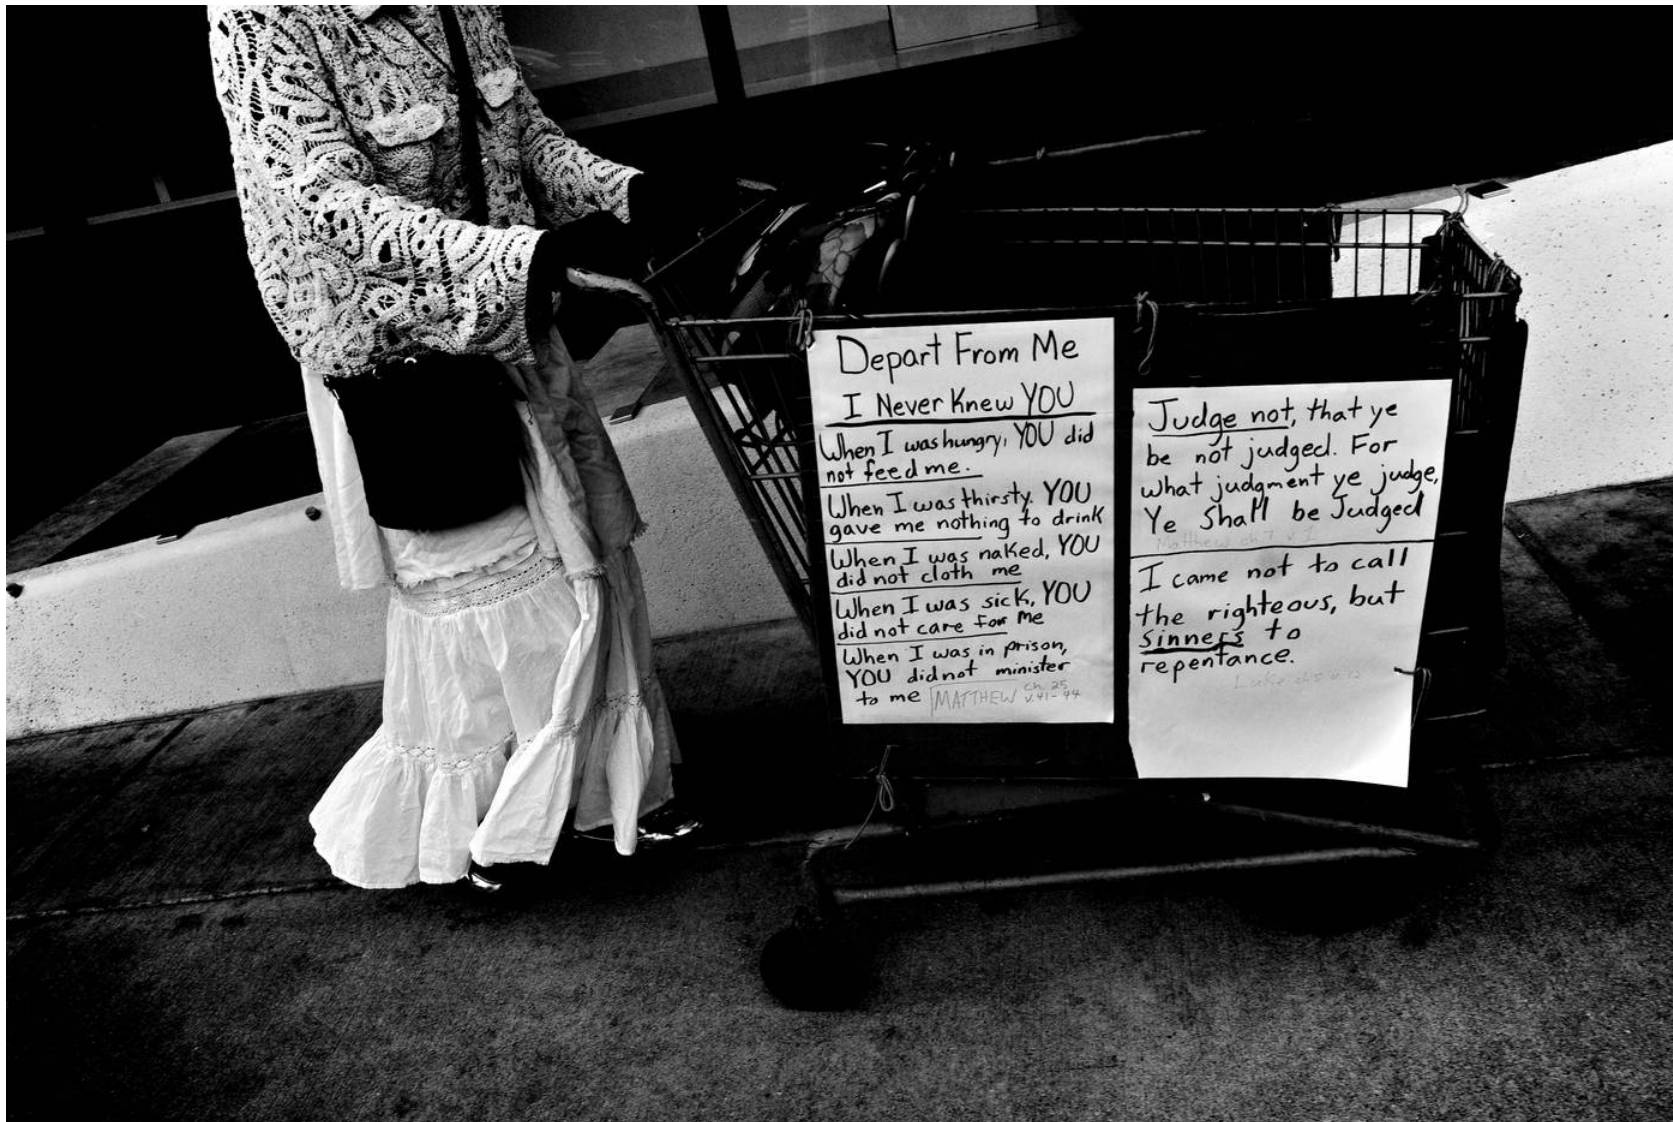 Depart From Me
I Never Knew YOU
When I was hungry, YOU did
not feed me.
When I was thirsty. YOU
gave me nothing to drink
When I was naked, YOU
did not cloth me
When I was sick, YOU
did not care for Me
When I was in prison,
YOU did not minister
to me MATTHEW ch. 25
v. 41-44
Judge not, that ye
be not judged. For
what judgment ye judge,
Ye Shall be Judged
Matthew ch 7 v 1
I came not to call
the righteous, but
sinners to
repentance.
Luke